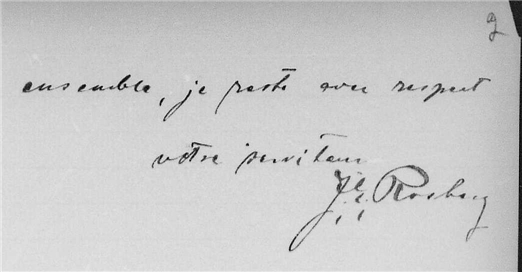 2
ensemble, je reste avec respect
votre serviteur
J. E. Rosberg